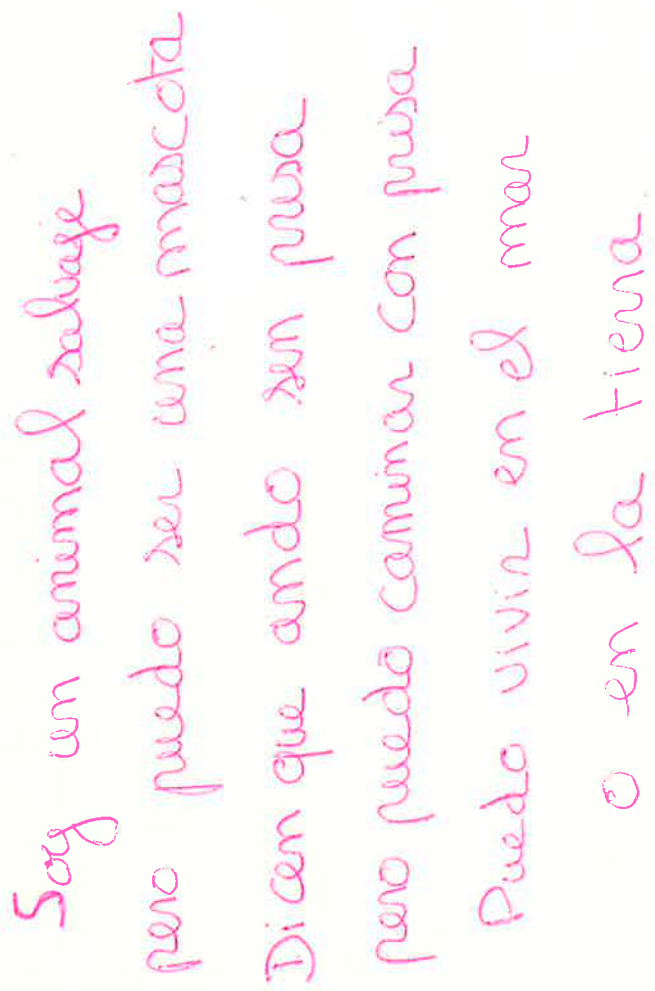 Soy un animal salvaje
pero puedo ser una mascota
Dicen que ando sin prisa
pero puedo caminar con prisa
Puedo vivir en el mar
o en la tierra